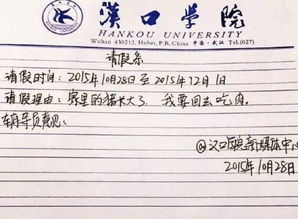 漢口学院
HANKOU UNIVERSITY
Wuhan 430212, Hubei, P.R. China 中国·武汉 Tel:(027)
请假条
请假时间：2015年10月28日至2015年12月1日
请假理由：家里的猪长大了，我要回去吃肉。
辅导员意见：
@汉口学院新媒体中心
2015年10月28日